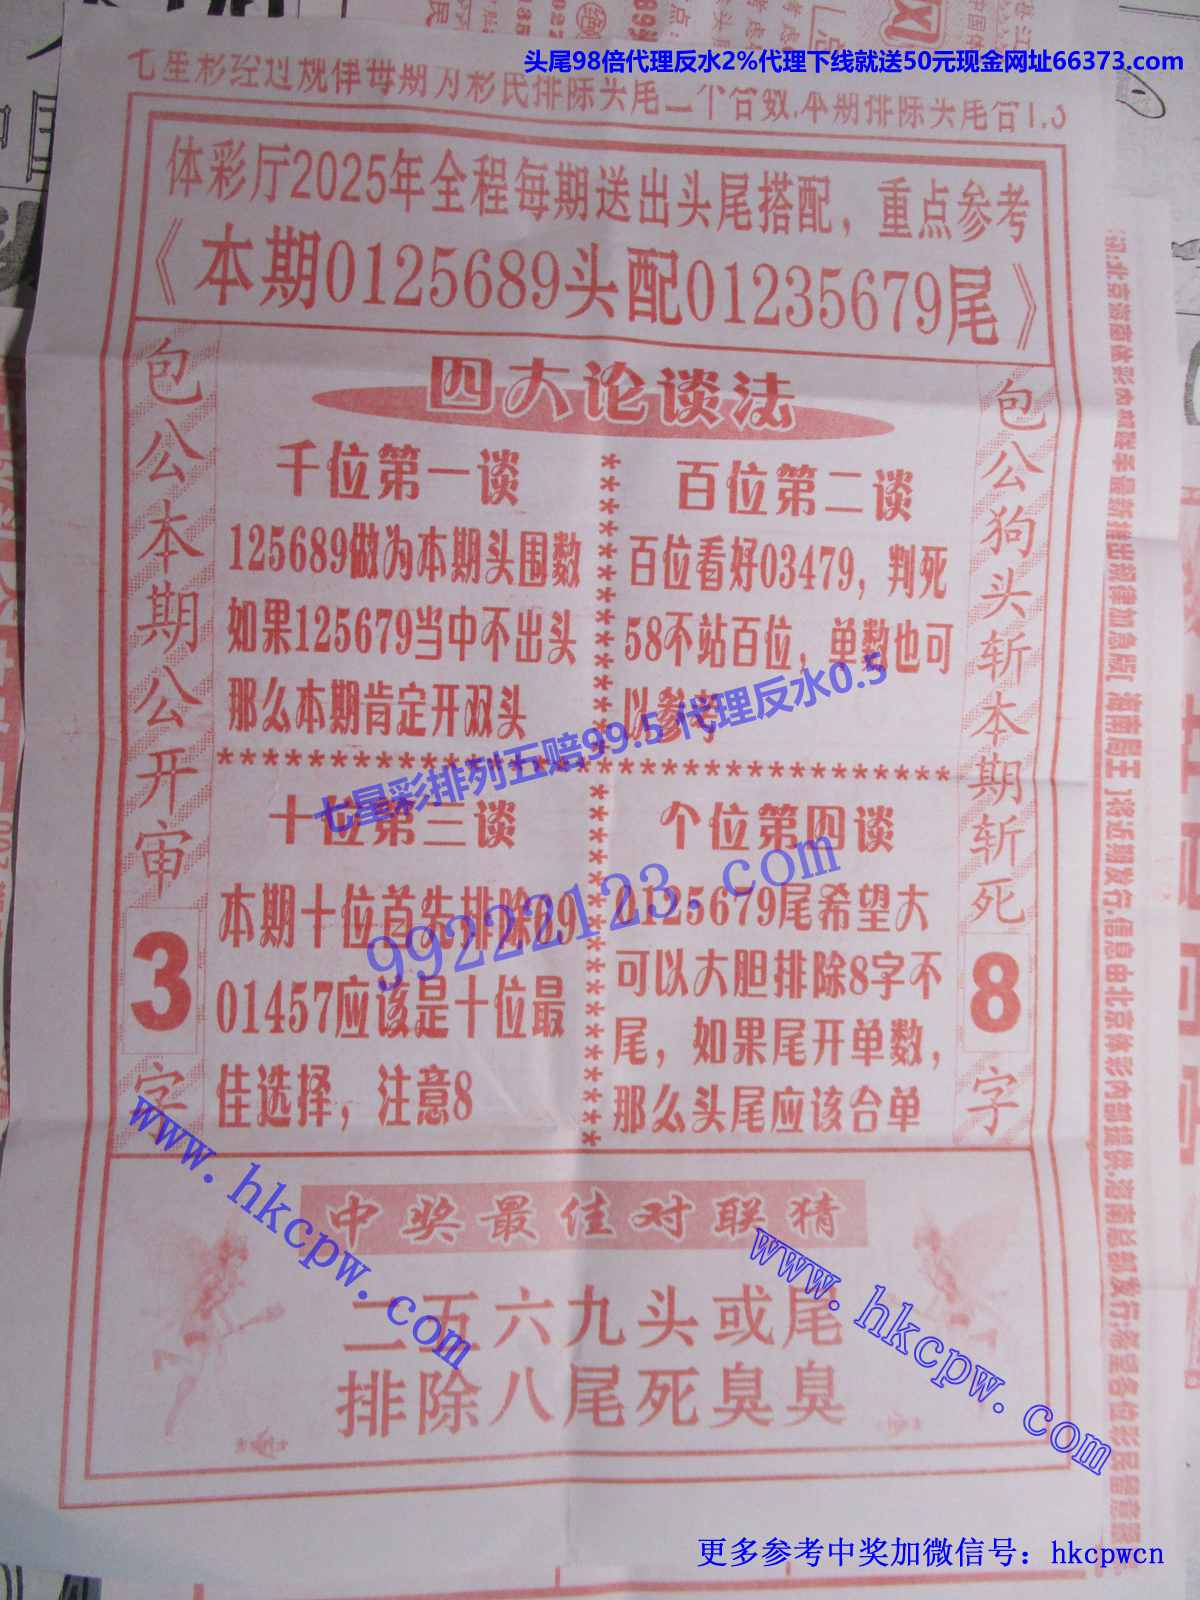 头尾98倍代理反水2%代理下线就送50元现金网址66373.com
七星彩经过规律每期为彩民排除头尾二个合数,本期排除头尾合1.3
体彩厅2025年全程每期送出头尾搭配，重点参考
《本期0125689头配01235679尾》
四大论谈法
包公本期公开审3字
千位第一谈
125689做为本期头围数
如果125679当中不出头
那么本期肯定开双头
百位第二谈
百位看好03479，判死
58不站百位，单数也可
以参考
十位第三谈
本期十位首先排除69
01457应该是十位最
佳选择，注意8
个位第四谈
0125679尾希望大
可以大胆排除8字不
尾，如果尾开单数，
那么头尾应该合单
包公狗头斩本期斩死8字
七星彩排列五赔99.5代理反水0.5
99222123.com
中奖最佳对联猜
二五六九头或尾
排除八尾死臭臭
www.hkcpw.com
www.hkcpw.com
更多参考中奖加微信号：hkcpwcn